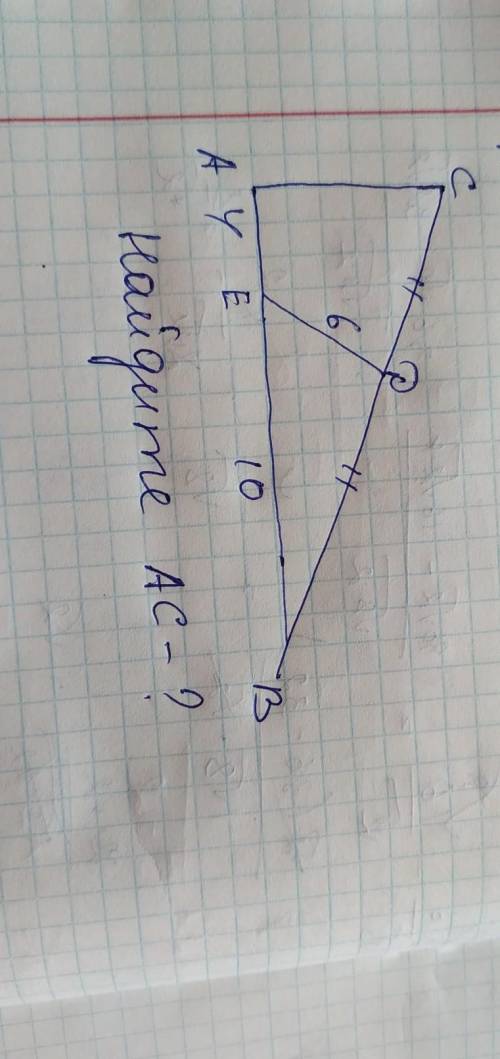 C
D
6
A 4 E 10 B
Найдите AC - ?